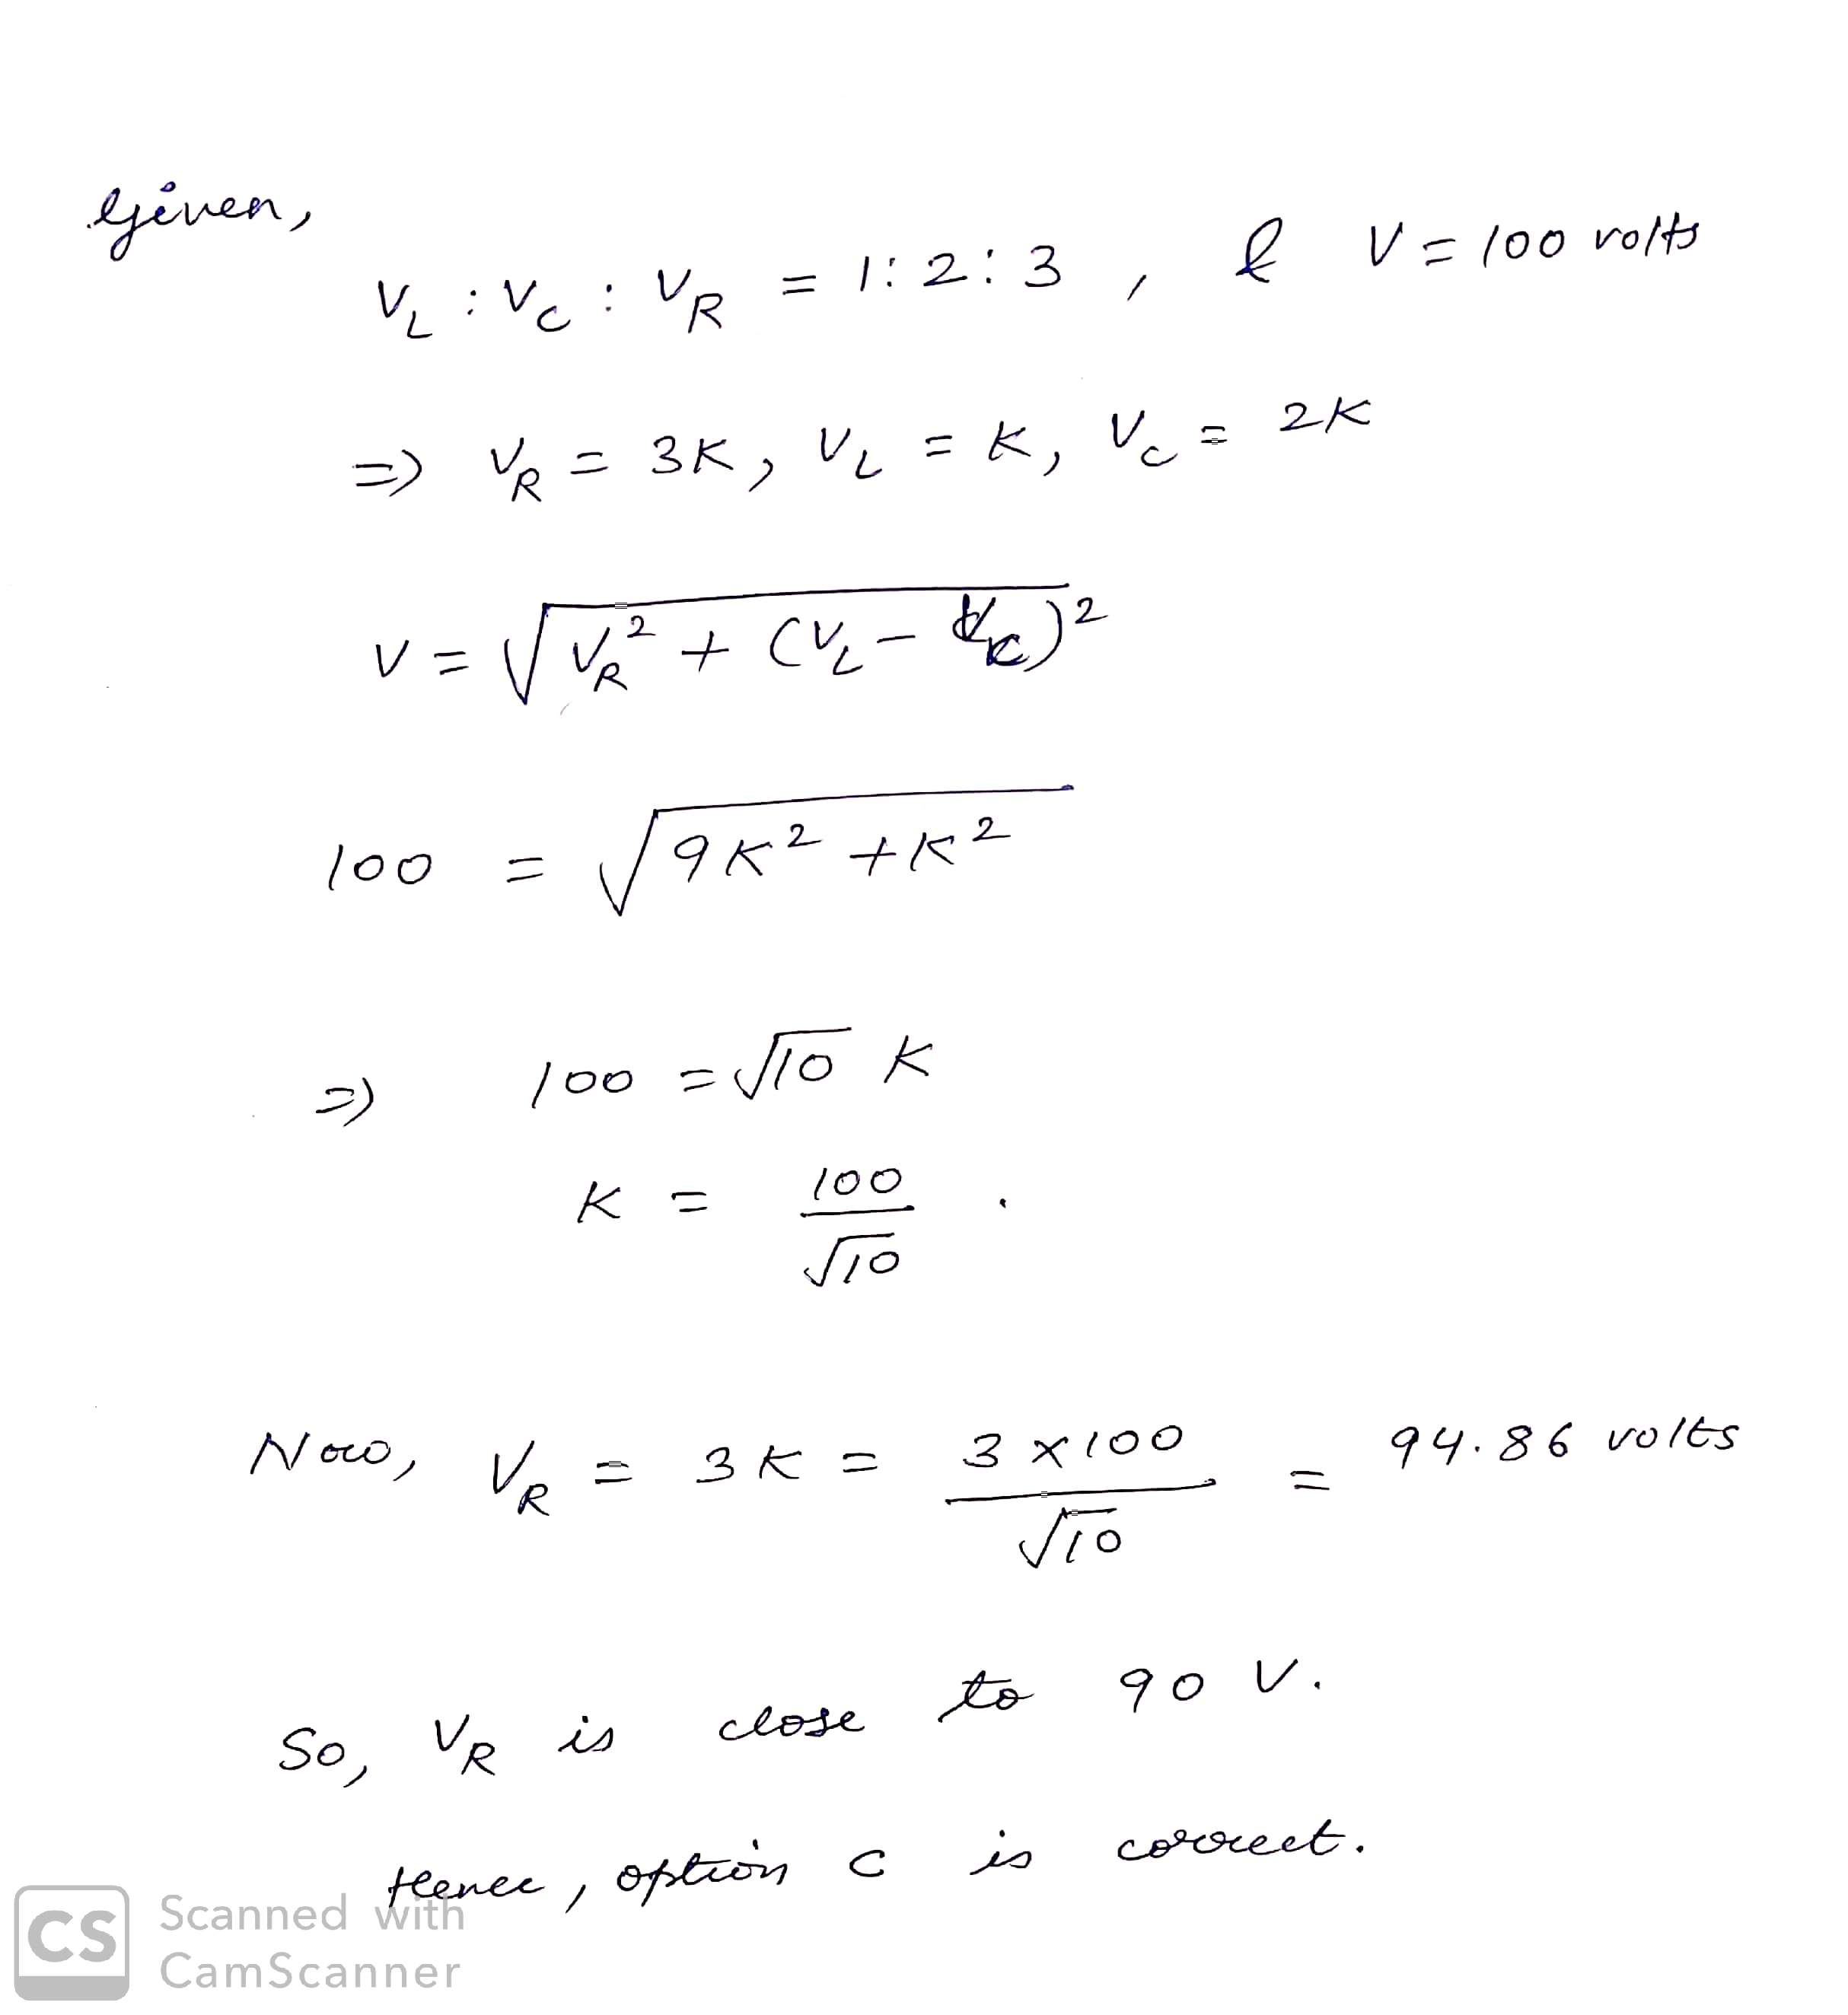 Given,
V_L : V_C : V_R = 1:2:3 , & V = 100 volts
=> V_R = 3K, V_L = K, V_C = 2K
V = √(V_R² + (V_L - V_C)²)
100 = √(9K² + K²)
=> 100 = √10 K
K = 100/√10 .
Now, V_R = 3K = 3×100/√10 = 94.86 volts
So, V_R is close to 90 V.
Hence, option C is correct.
CS Scanned with
CamScanner